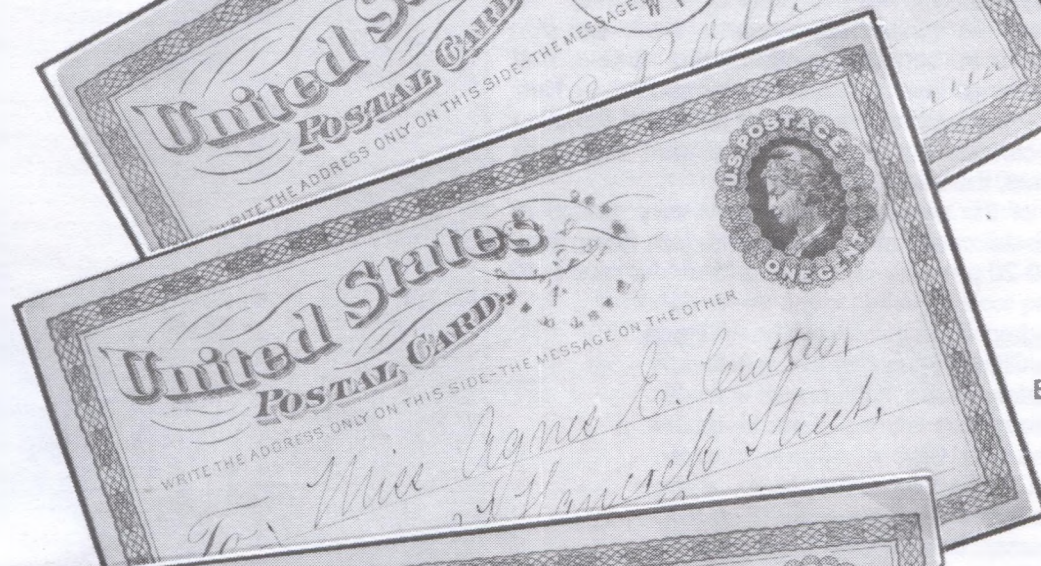 United S
POSTAL CARD
WRITE THE ADDRESS ONLY ON THIS SIDE-THE MESSAGE
U.S. POSTAGE
ONE CENT
United States
POSTAL CARD.
WRITE THE ADDRESS ONLY ON THIS SIDE-THE MESSAGE ON THE OTHER
To Miss Agnes E. Cutter,
Hancock Street,